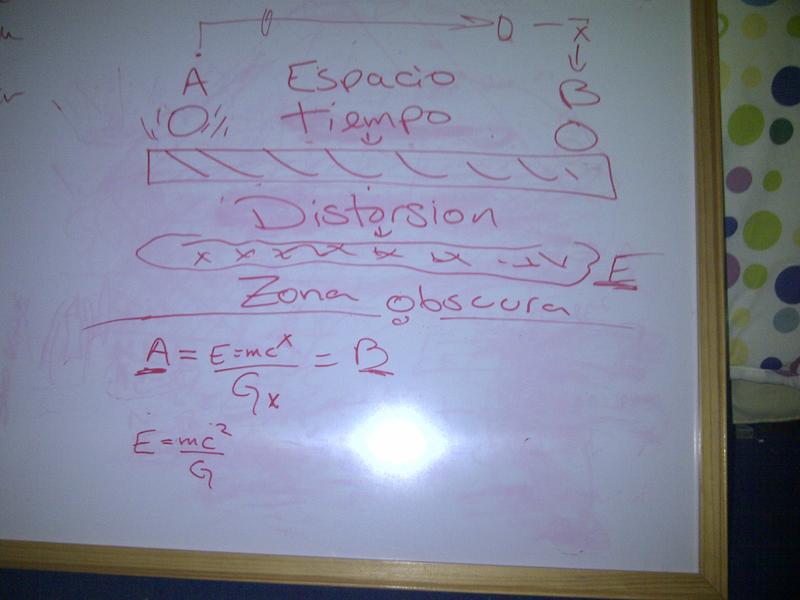 0 — x
A Espacio B
tiempo
Distorsion
x x x x x x x E
Zona obscura
A = E=mc^x / Gx = B
E = mc² / G